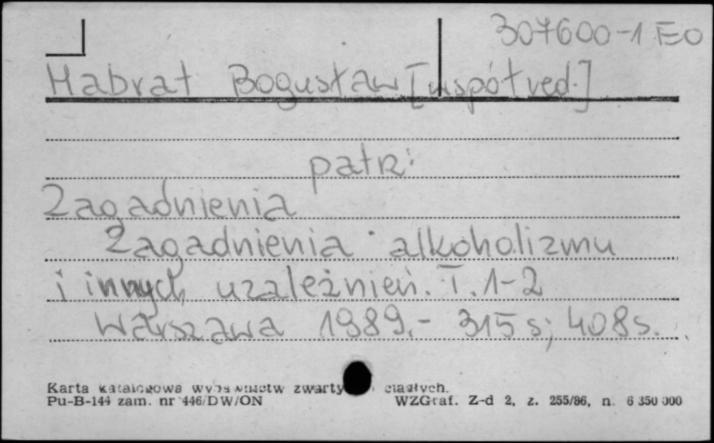 307600-1 EO
Habrat Bogusław [współred.]
patrz:
Zagadnienia
Zagadnienia alkoholizmu
i innych uzależnień. T. 1-2
Warszawa 1989.- 315 s; 408 s.
Karta katalogowa wydawnictw zwarty ciągłych.
Pu-B-144 zam. nr 446/DW/ON WZGraf. Z-d 2, z. 255/86, n. 6 350 000